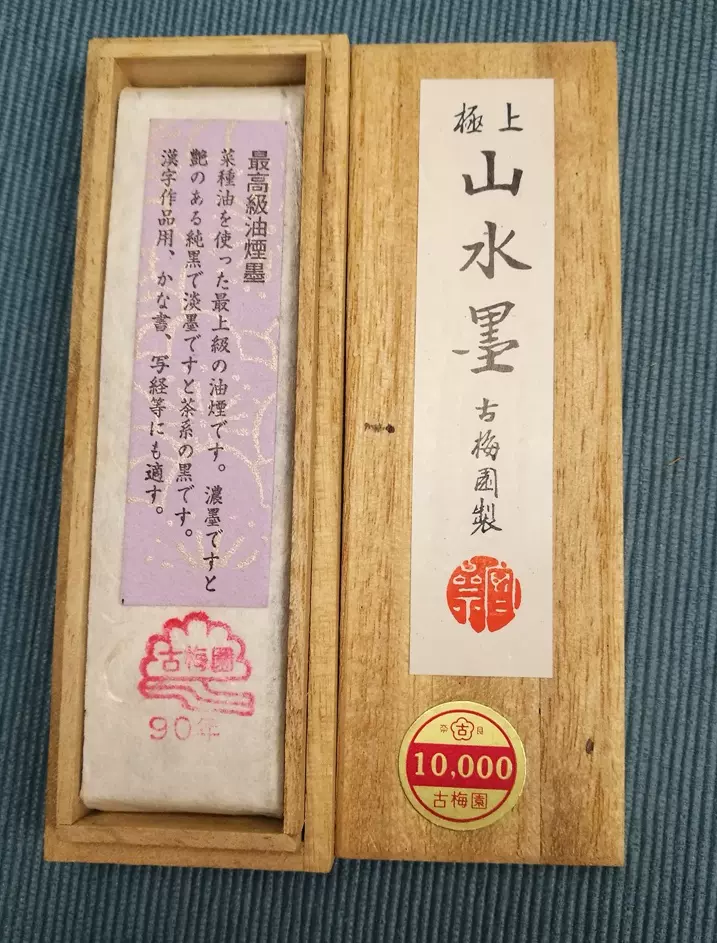 極上
山水墨
古梅園製
奈 古 良
10,000
古梅園
最高級油煙墨
菜種油を使った最上級の油煙です。濃墨ですと
艶のある純黒で淡墨ですと茶系の黒です。
漢字作品用、かな書、写経等にも適す。
古梅園
90年